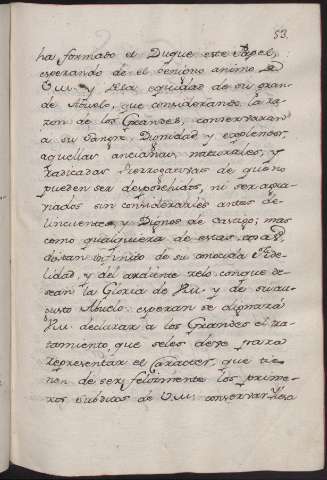 53.
ha formado el Duque este Papel,
esperando de el benigno animo de
V.M. y dela equidad de su gran-
de Abuelo, que considerando la ra-
zon de los Grandes, conservaran
a su Sangre, Dignidad y explendor,
aquellas ancianas, naturales, y
radicadas Prerrogativas de que no
pueden ser desposehidos, ni ser agra-
viados sin considerarles antes de-
lincuentes y Dignos de Castigo; mas
como qualquiera de estas cosas
distan infinito de su conocida Fide-
lidad, y del ardiente zelo conque de-
sean la Gloria de V.M. y de su au-
gusto Abuelo, esperan se dignará
V.M. declarar a los Grandes el tra-
tamiento que seles deve para
representar el Caracter, que tie-
nen de ser felizmente los prime-
ros subditos de V.M. conservar